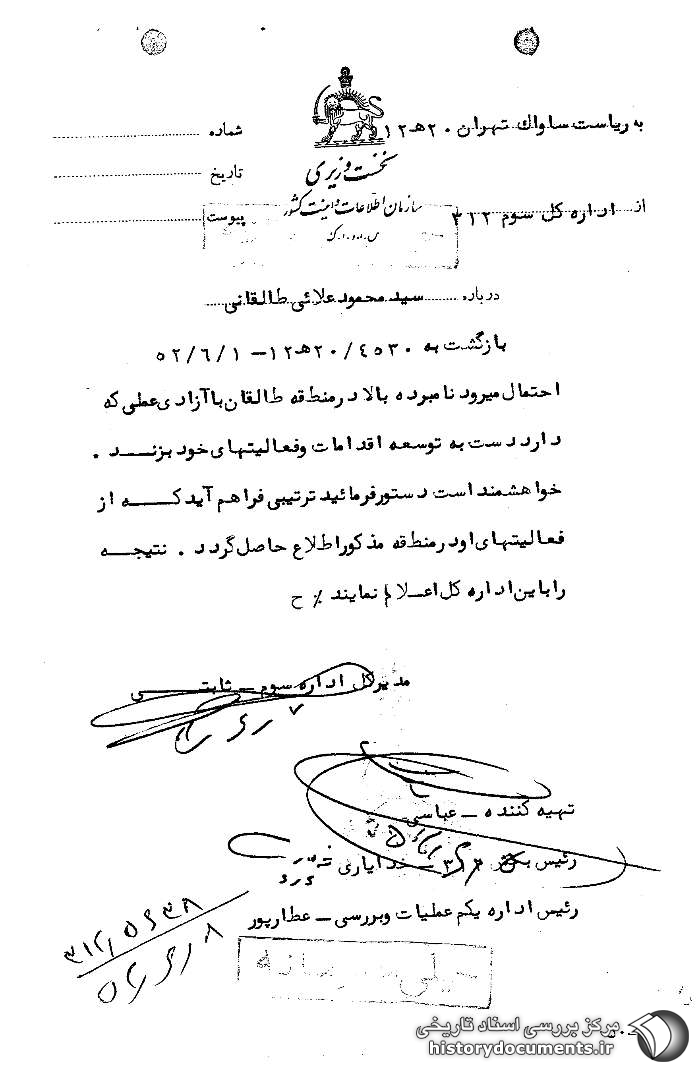 به ریاست ساواک تهران ۲۰ه‍ ۱۲
شماره
نخست وزیری
تاریخ
سازمان اطلاعات و امنیت کشور
از اداره کل سوم ۳۱۲
پیوست
س.ا.و.ا.ک
درباره سید محمود علائی طالقانی
بازگشت به ۴۵۳۰/ ۲۰ه‍ ۱۲ – ۵۲/۶/۱
احتمال میرود نامبرده بالا در منطقه طالقان با آزادی عملی که
دارد دست به توسعه اقدامات و فعالیتهای خود بزند .
خواهشمند است دستور فرمائید ترتیبی فراهم آید که از
فعالیتهای او در منطقه مذکور اطلاع حاصل گردد . نتیجه
را باین اداره کل اعلام نمایند ٪ ح
مدیر کل اداره سوم – ثابتی
تهیه کننده – عباسی
رئیس بخش ۳۱۲ – خدایاری
رئیس اداره یکم عملیات و بررسی – عطارپور
۳۱۲/۵۶۳۸
۵۲/۶/۸
خیلی محرمانه
مرکز بررسی اسناد تاریخی
historydocuments.ir